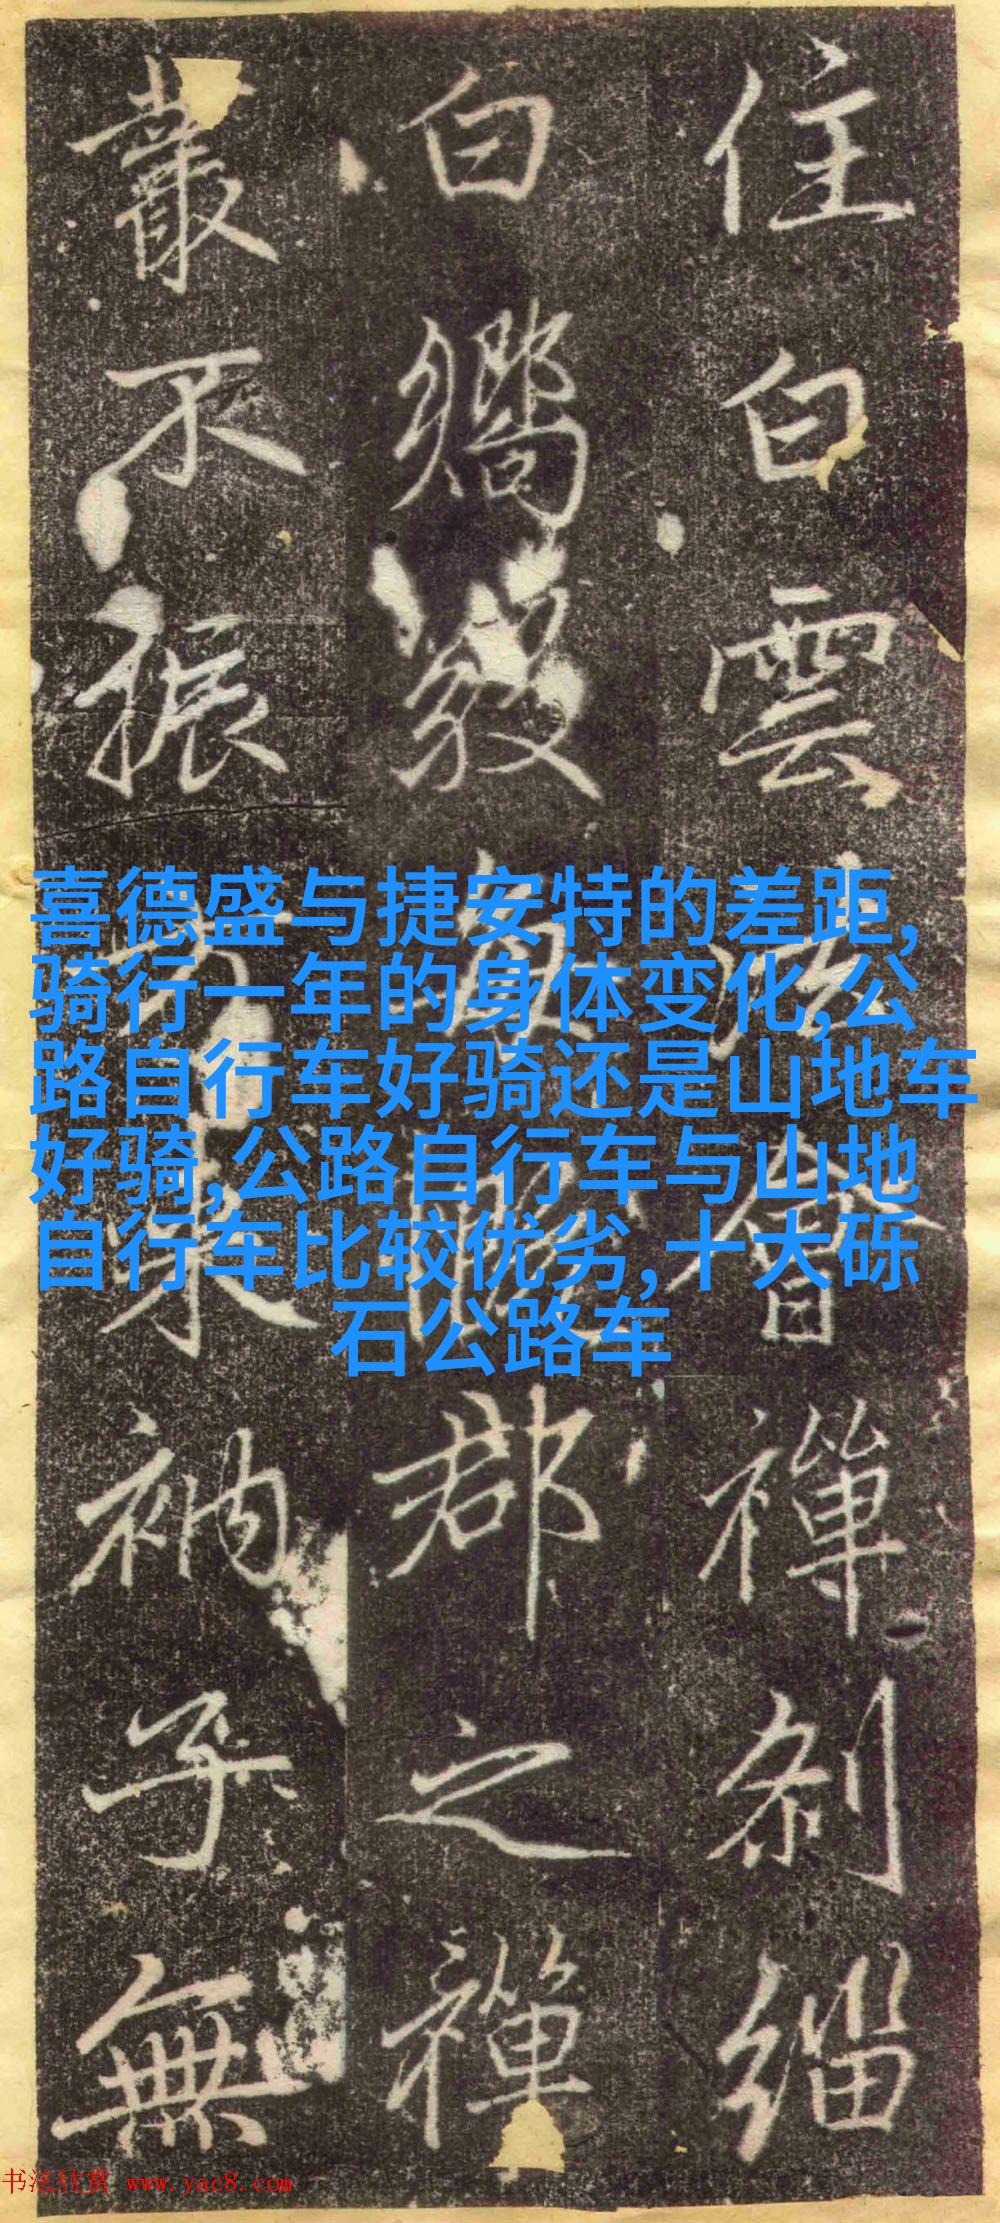 住白雲
會禪刹緇
白
郡之禪
叢不振
衲子無
喜德盛与捷安特的差距,
骑行一年的身体变化,公
路自行车好骑还是山地车
好骑,公路自行车与山地
自行车比较优劣,十大砾
石公路车
书法欣赏 www.yac8.com